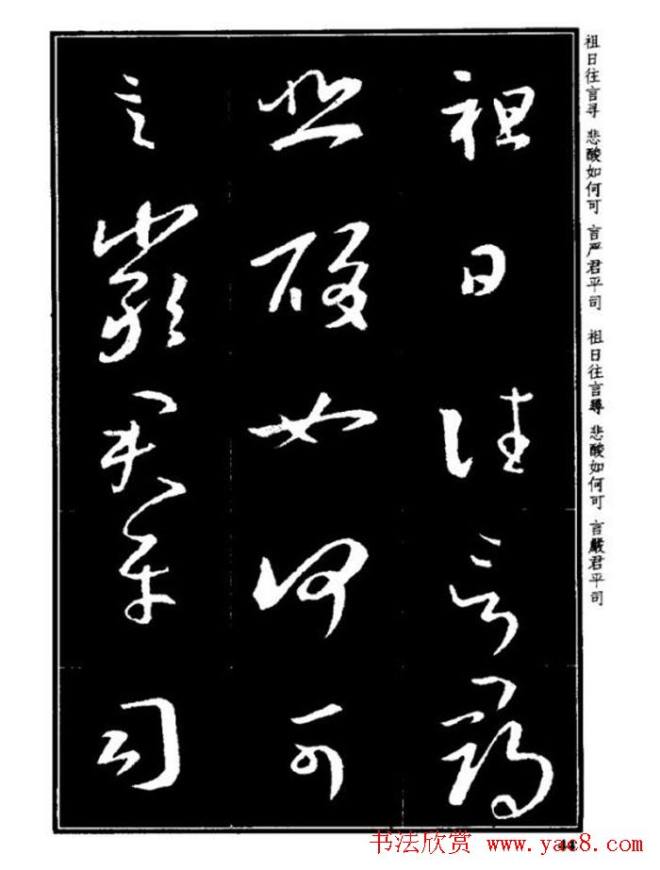 祖日往言寻
悲酸如何可
言嚴君平司
祖日往言寻 悲酸如何可 言严君平司 祖日往言尋 悲酸如何可 言嚴君平司
书法欣赏 www.yac8.com
44